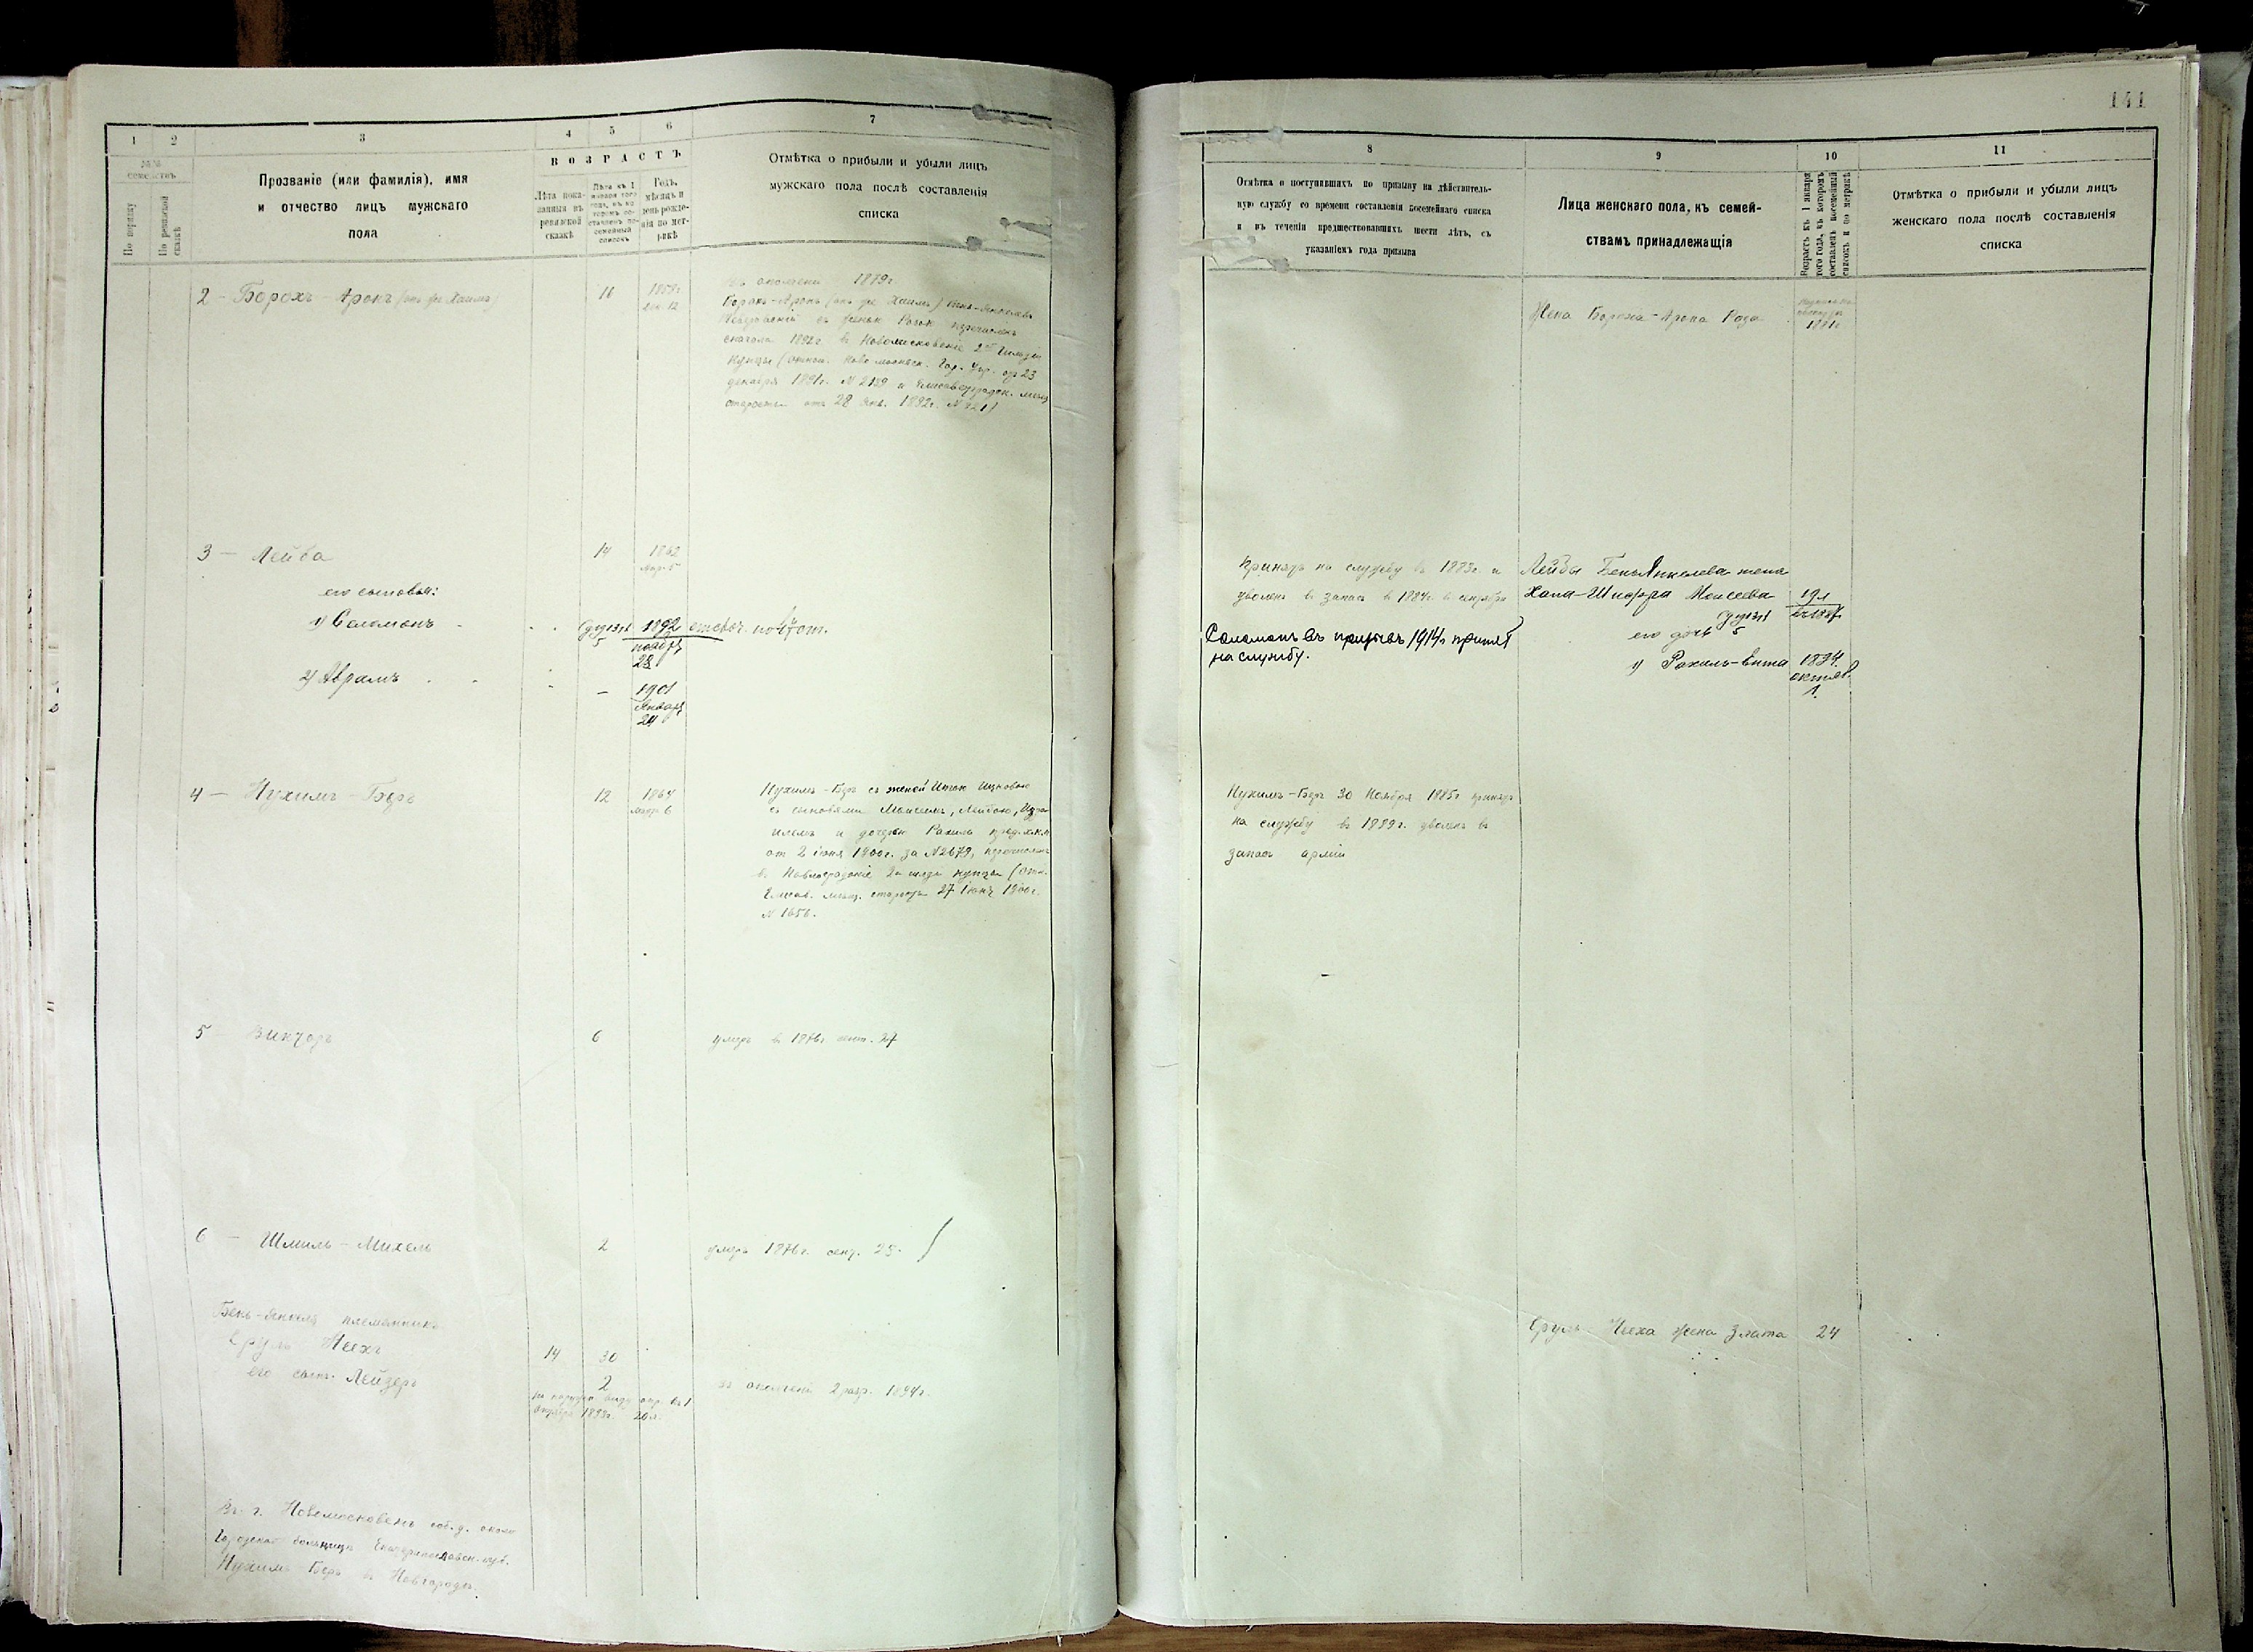 1
2
3
4
5
6
7
№№ семействъ
По порядку
По ревизской сказкѣ
Прозваніе (или фамилія), имя
и отчество лицъ мужскаго
пола
ВОЗРАСТЪ
Лѣта пока-
занныя въ
ревизской
сказкѣ
Лѣта къ 1
января того
года, въ ко-
торомъ со-
ставленъ по-
семейный
списокъ
Годъ,
мѣсяцъ и
день рожде-
нія по мет-
рикѣ
Отмѣтка о прибыли и убыли лицъ
мужскаго пола послѣ составленія
списка
2 - Борохъ - Аронъ (онъ же Хаимъ)
16
1859 г.
дек. 12
1879 г.
Борохъ-Аронъ (онъ же Хаимъ) Бень-Янкелевъ
съ женою Розою перечисленъ
сначала 1892 г. въ Новомосковскіе 2й Гильдіи
купцы (отнош. Новомосковск. Гор. Упр. отъ 23
декабря 1891 г. № 2129 и Елисаветградск. мѣщ
старосты отъ 28 Янв. 1892 г. № 221)
3 - Лейба
14
1862
Мар. 5
его сыновья:
1) Соломонъ
5
1892
ноябр
28
отсроч. по 47 ст.
2) Аврамъ
-
1901
Января
24
4 - Нухимъ - Беръ
12
1864
6
Нухимъ-Беръ съ женой Итою Ицковою
съ сыновьями Моисеемъ, Лейбою, Изра
илемъ и дочерью Рахиль предлож.
от 2 іюня 1900 г. за № 2679, перечислен
въ Павлоградскіе 2й гильд купцы (отн.
Елисав. мѣщ. старосты 27 Іюня 1900 г.
№ 1656.
5 - Викторъ
6
умеръ въ 1876 г. сент. 27
6 - Шмиль - Михель
2
умеръ 1876 г. сент. 25.
Бень-Янкеля племянникъ
Сруль Песхъ
14
30
его сынъ Лейзеръ
2
по наружно виду опр. къ 1
октября 1893 г. 20 л.
въ ополченіе 2 разр. 1894 г.
Въ г. Новомосковскъ соб. д. около
Городской больницы Екатеринославск. губ.
Нухимъ Беръ въ Новгородѣ.
141
8
9
10
11
Отмѣтка о поступившихъ по призыву на дѣйствитель-
ную службу со времени составленія посемейнаго списка
и въ теченіи предшествовавшихъ шести лѣтъ, съ
указаніемъ года призыва
Лица женскаго пола, къ семей-
ствамъ принадлежащія
Возрастъ къ 1 января
того года, въ которомъ
составленъ посемейный
списокъ и по метрикѣ
Отмѣтка о прибыли и убыли лицъ
женскаго пола послѣ составленія
списка
Жена Бороха-Арона Роза
1891 г.
Принятъ на службу въ 1883 г. и
уволенъ въ запасъ въ 1884 г. въ сентябрѣ
Лейбы Бень Янкелева жена
Хана-Шифра Моисеева
19 л
въ 1887.
Соломонъ въ призывъ 1914 г. принят
на службу.
его дочь
1) Рахиль-Бита
1894.
октяб.
1.
Нухимъ-Беръ 30 Ноября 1885 г принятъ
на службу въ 1889 г. уволенъ въ
запасъ арміи
Сруль Песха жена Злата
24